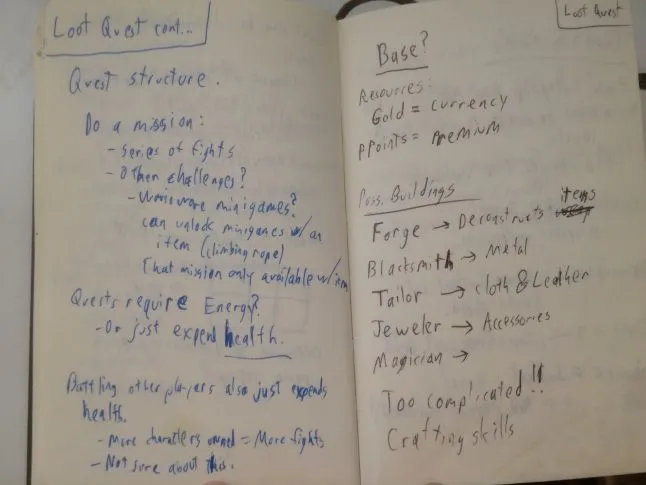 Loot Quest cont...
Quest structure.
Do a mission:
- Series of fights
- Other challenges?
- Warioware minigames?
can unlock minigames w/ an
item (climbing rope)
That mission only available w/ item
Quests require Energy?
- Or just expend health.
Battling other players also just expends
health.
- More characters owned = More fights
- Not sure about this.
Loot Quest
Base?
Resources:
Gold = currency
PPoints = Premium
Poss. Buildings
Forge → Deconstructs items
Blacksmith → Metal
Tailor → Cloth & Leather
Jeweler → Accessories
Magician →
Too complicated!!
Crafting skills